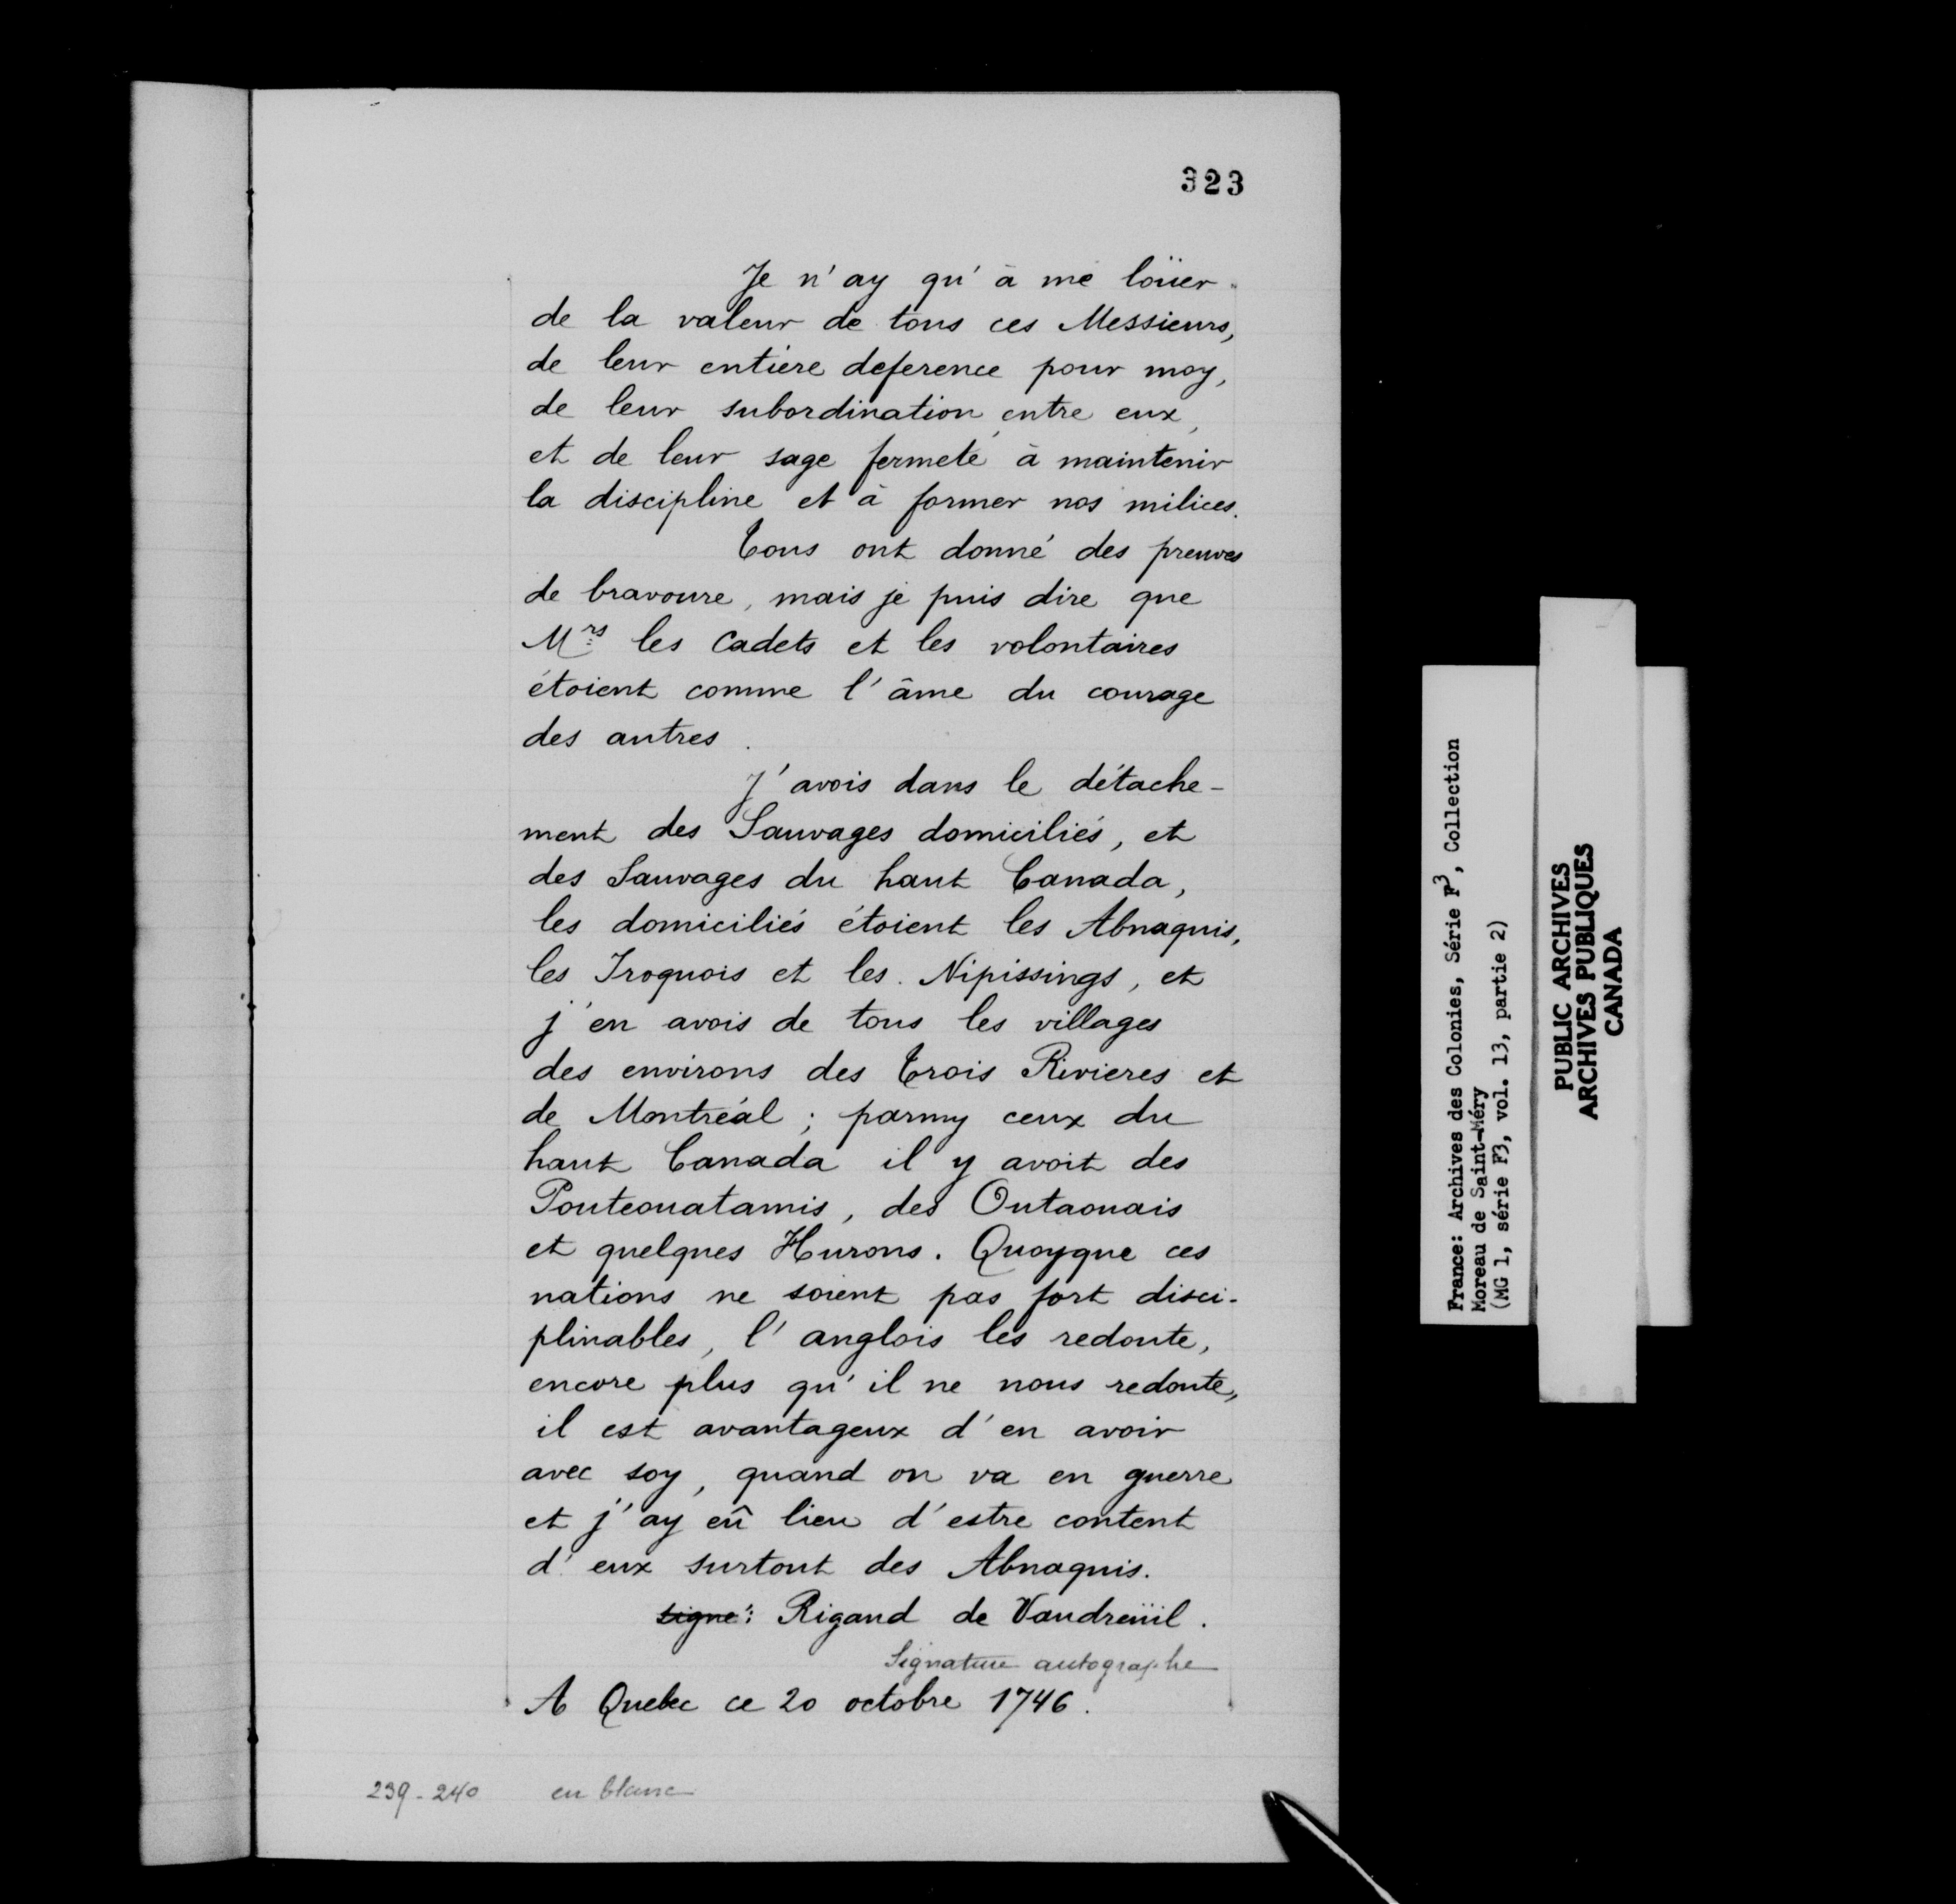 323
Je n'ay qu'à me loüer
de la valeur de tous ces Messieurs,
de leur entière deference pour moy,
de leur subordination entre eux,
et de leur sage fermeté à maintenir
la discipline et à former nos milices.
Tous ont donné des preuves
de bravoure, mais je puis dire que
Mrs les Cadets et les volontaires
étoient comme l'âme du courage
des autres.
J'avois dans le détache-
ment des Sauvages domiciliés, et
des Sauvages du haut Canada,
les domiciliés étoient les Abnaquis,
les Iroquois et les Nipissings, et
j'en avois de tous les villages
des environs des Trois Rivieres et
de Montréal; parmy ceux du
haut Canada il y avoit des
Pouteouatamis, des Outaouais
et quelques Hurons. Quoyque ces
nations ne soient pas fort disci-
plinables, l'anglois les redoute,
encore plus qu'il ne nous redoute,
il est avantageux d'en avoir
avec soy, quand on va en guerre
et j'ay eû lieu d'estre content
d'eux surtout des Abnaquis.
signé: Rigaud de Vaudreüil.
Signature autographe
A Quebec ce 20 octobre 1746.
239-240 en blanc
France: Archives des Colonies, Série F3, Collection
Moreau de Saint-Méry
(MG 1, série F3, vol. 13, partie 2)
PUBLIC ARCHIVES
ARCHIVES PUBLIQUES
CANADA